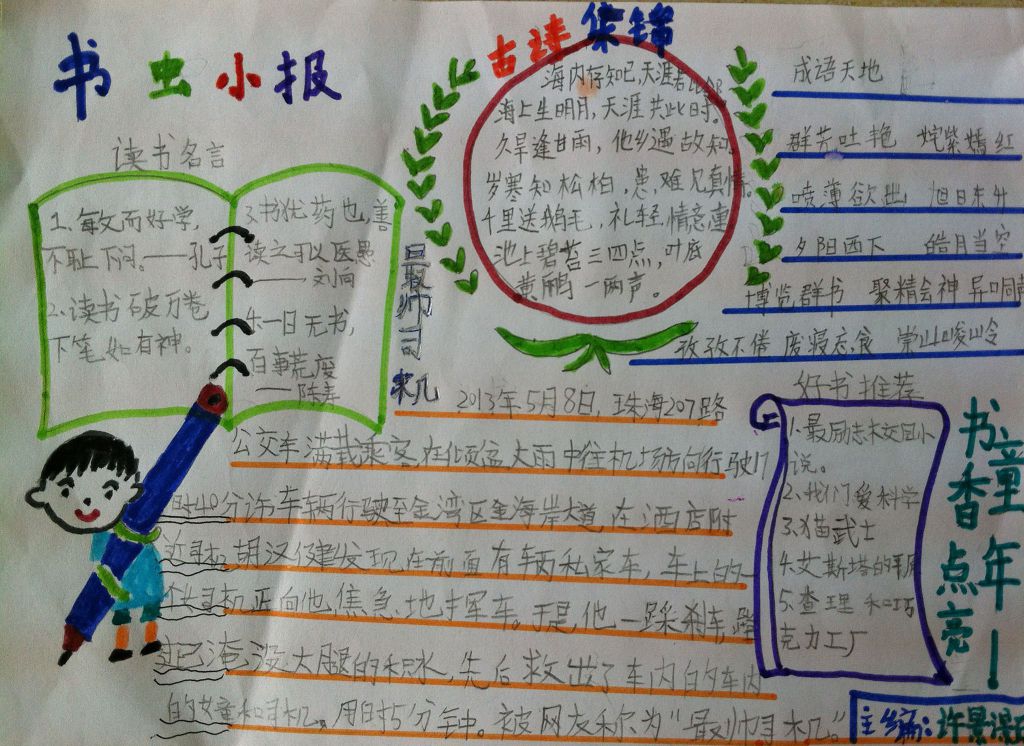 书虫小报
读书名言
1、每文而好学,
不耻下问。——孔子
2、读书破万卷
下笔如有神。
3、书犹药也,善
读之可以医愚
——刘向
乐一日无书,
百事荒废
——陈寿
古诗集锦
海内存知已,天涯若比邻
海上生明月,天涯共此时。
久旱逢甘雨,他乡遇故知
岁寒知松柏,患难见真情。
千里送鹅毛,礼轻情意重
池上碧苔三四点,叶底
黄鹂一两声。
成语天地
群芳吐艳 姹紫嫣红
喷薄欲出 旭日东升
夕阳西下 皓月当空
博览群书 聚精会神 异口同声
孜孜不倦 废寝忘食 崇山峻岭
最帅司机
2013年5月8日,珠海207路
公交车满载乘客,在倾盆大雨中往机场方向行驶17
时40分许车辆行驶至金湾区金海岸大道,在酒店附
近司机胡汉健发现在前面有辆私家车,车上的一
个司机正向他焦急地挥车。于是,他一踩刹车,蹚
过淹没大腿的积水,先后救出了车内的车内
的女童和司机,用时5分钟。被网友称为“最帅司机。”
好书推荐
1、最励志木交园小
说。
2、我们爱科学
3、猫武士
4、艾斯塔的
5、查理和巧
克力工厂
书香点亮
童年—
主编:许景